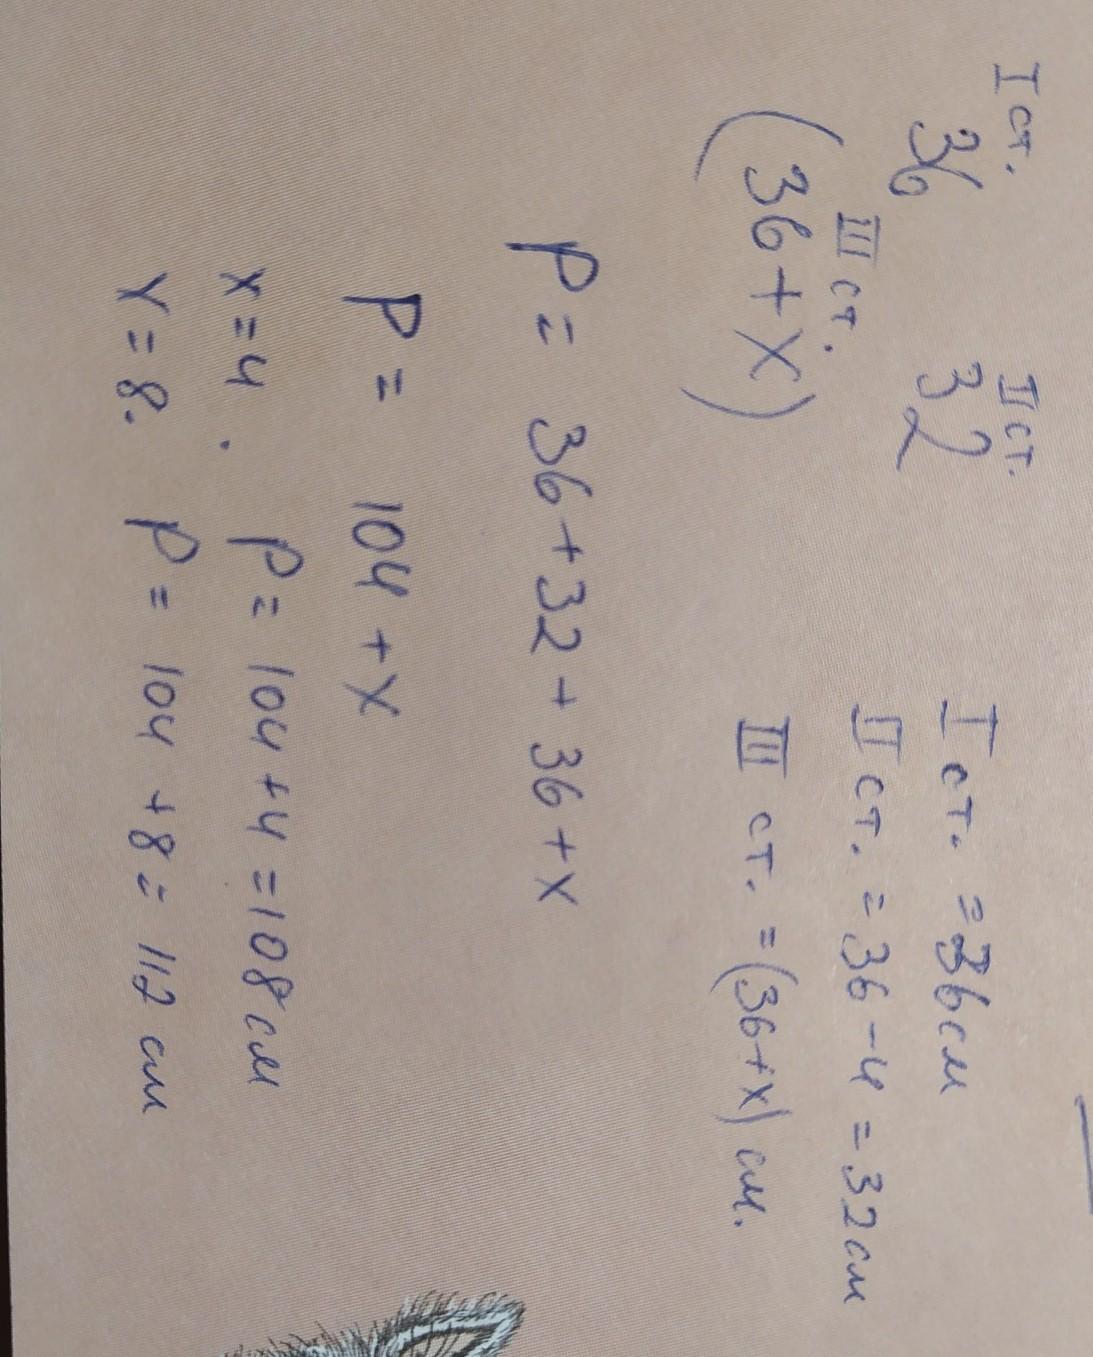 I ст. II ст.
36 32
III ст.
(36+x)
I ст. = 36см
II ст. = 36-4 = 32см
III ст. = (36+x) см.
P = 36+32+36+x
P = 104+x
x = 4. P = 104+4 = 108см
Y = 8. P = 104+8 = 112 см